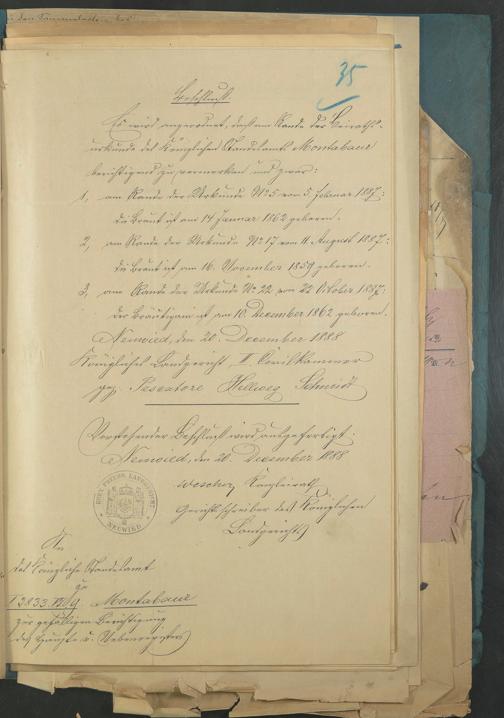 35
Beschluß.
Es wird angeordnet, daß am Rande der Heiraths-
urkunde des Königlichen Standesamts Montabaur
berichtigend zu vermerken und zwar:
1, am Rande der Urkunde No 5 vom 5. Februar 1887:
die Braut ist am 14 Januar 1862 geboren.
2, am Rande der Urkunde No 17 vom 11. August 1887:
die Braut ist am 16. November 1859 geboren.
3, am Rande der Urkunde No 22 vom 22 Oktober 1887:
der Bräutigam ist am 10. Dezember 1862 geboren.
Neuwied, den 20. December 1888
Königliches Landgericht, II Civilkammer
gez. Pescatore Hellweg Schmidt
Vorstehender Beschluß wird ausgefertigt:
Neuwied, den 20. December 1888.
Kanzleirath,
Gerichtsschreiber des Königlichen
Landgerichts
KÖN. PREUSS. LANDGERICHT
NEUWIED
An
das Königliche Standesamt
zu
Montabaur
zur gefälligen Berichtigung
des Haupt- u. Nebenregisters